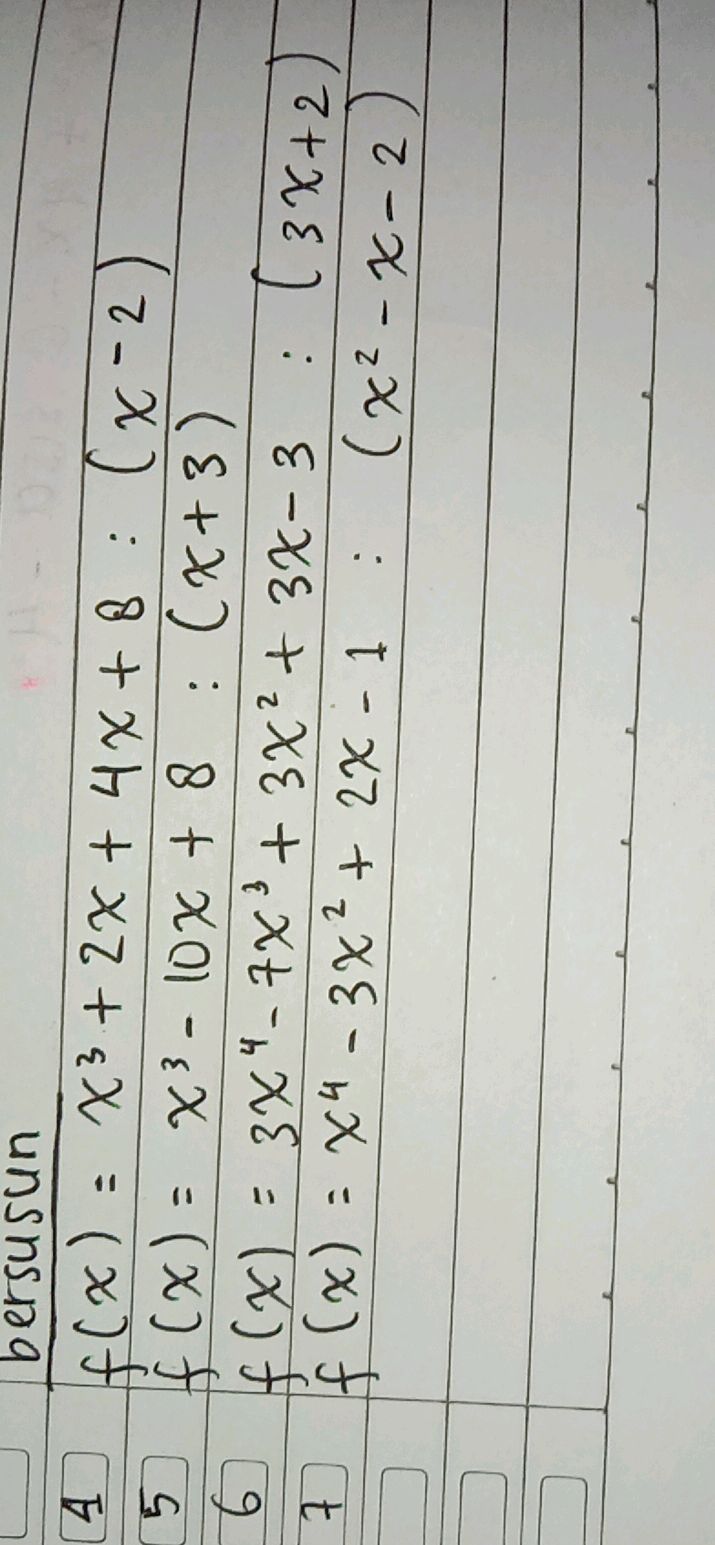 bersusun
4 f(x) = x³ + 2x + 4x + 8 : (x - 2)
5 f(x) = x³ - 10x + 8 : (x + 3)
6 f(x) = 3x⁴ - 7x³ + 3x² + 3x - 3 : (3x + 2)
7 f(x) = x⁴ - 3x² + 2x - 1 : (x² - x - 2)